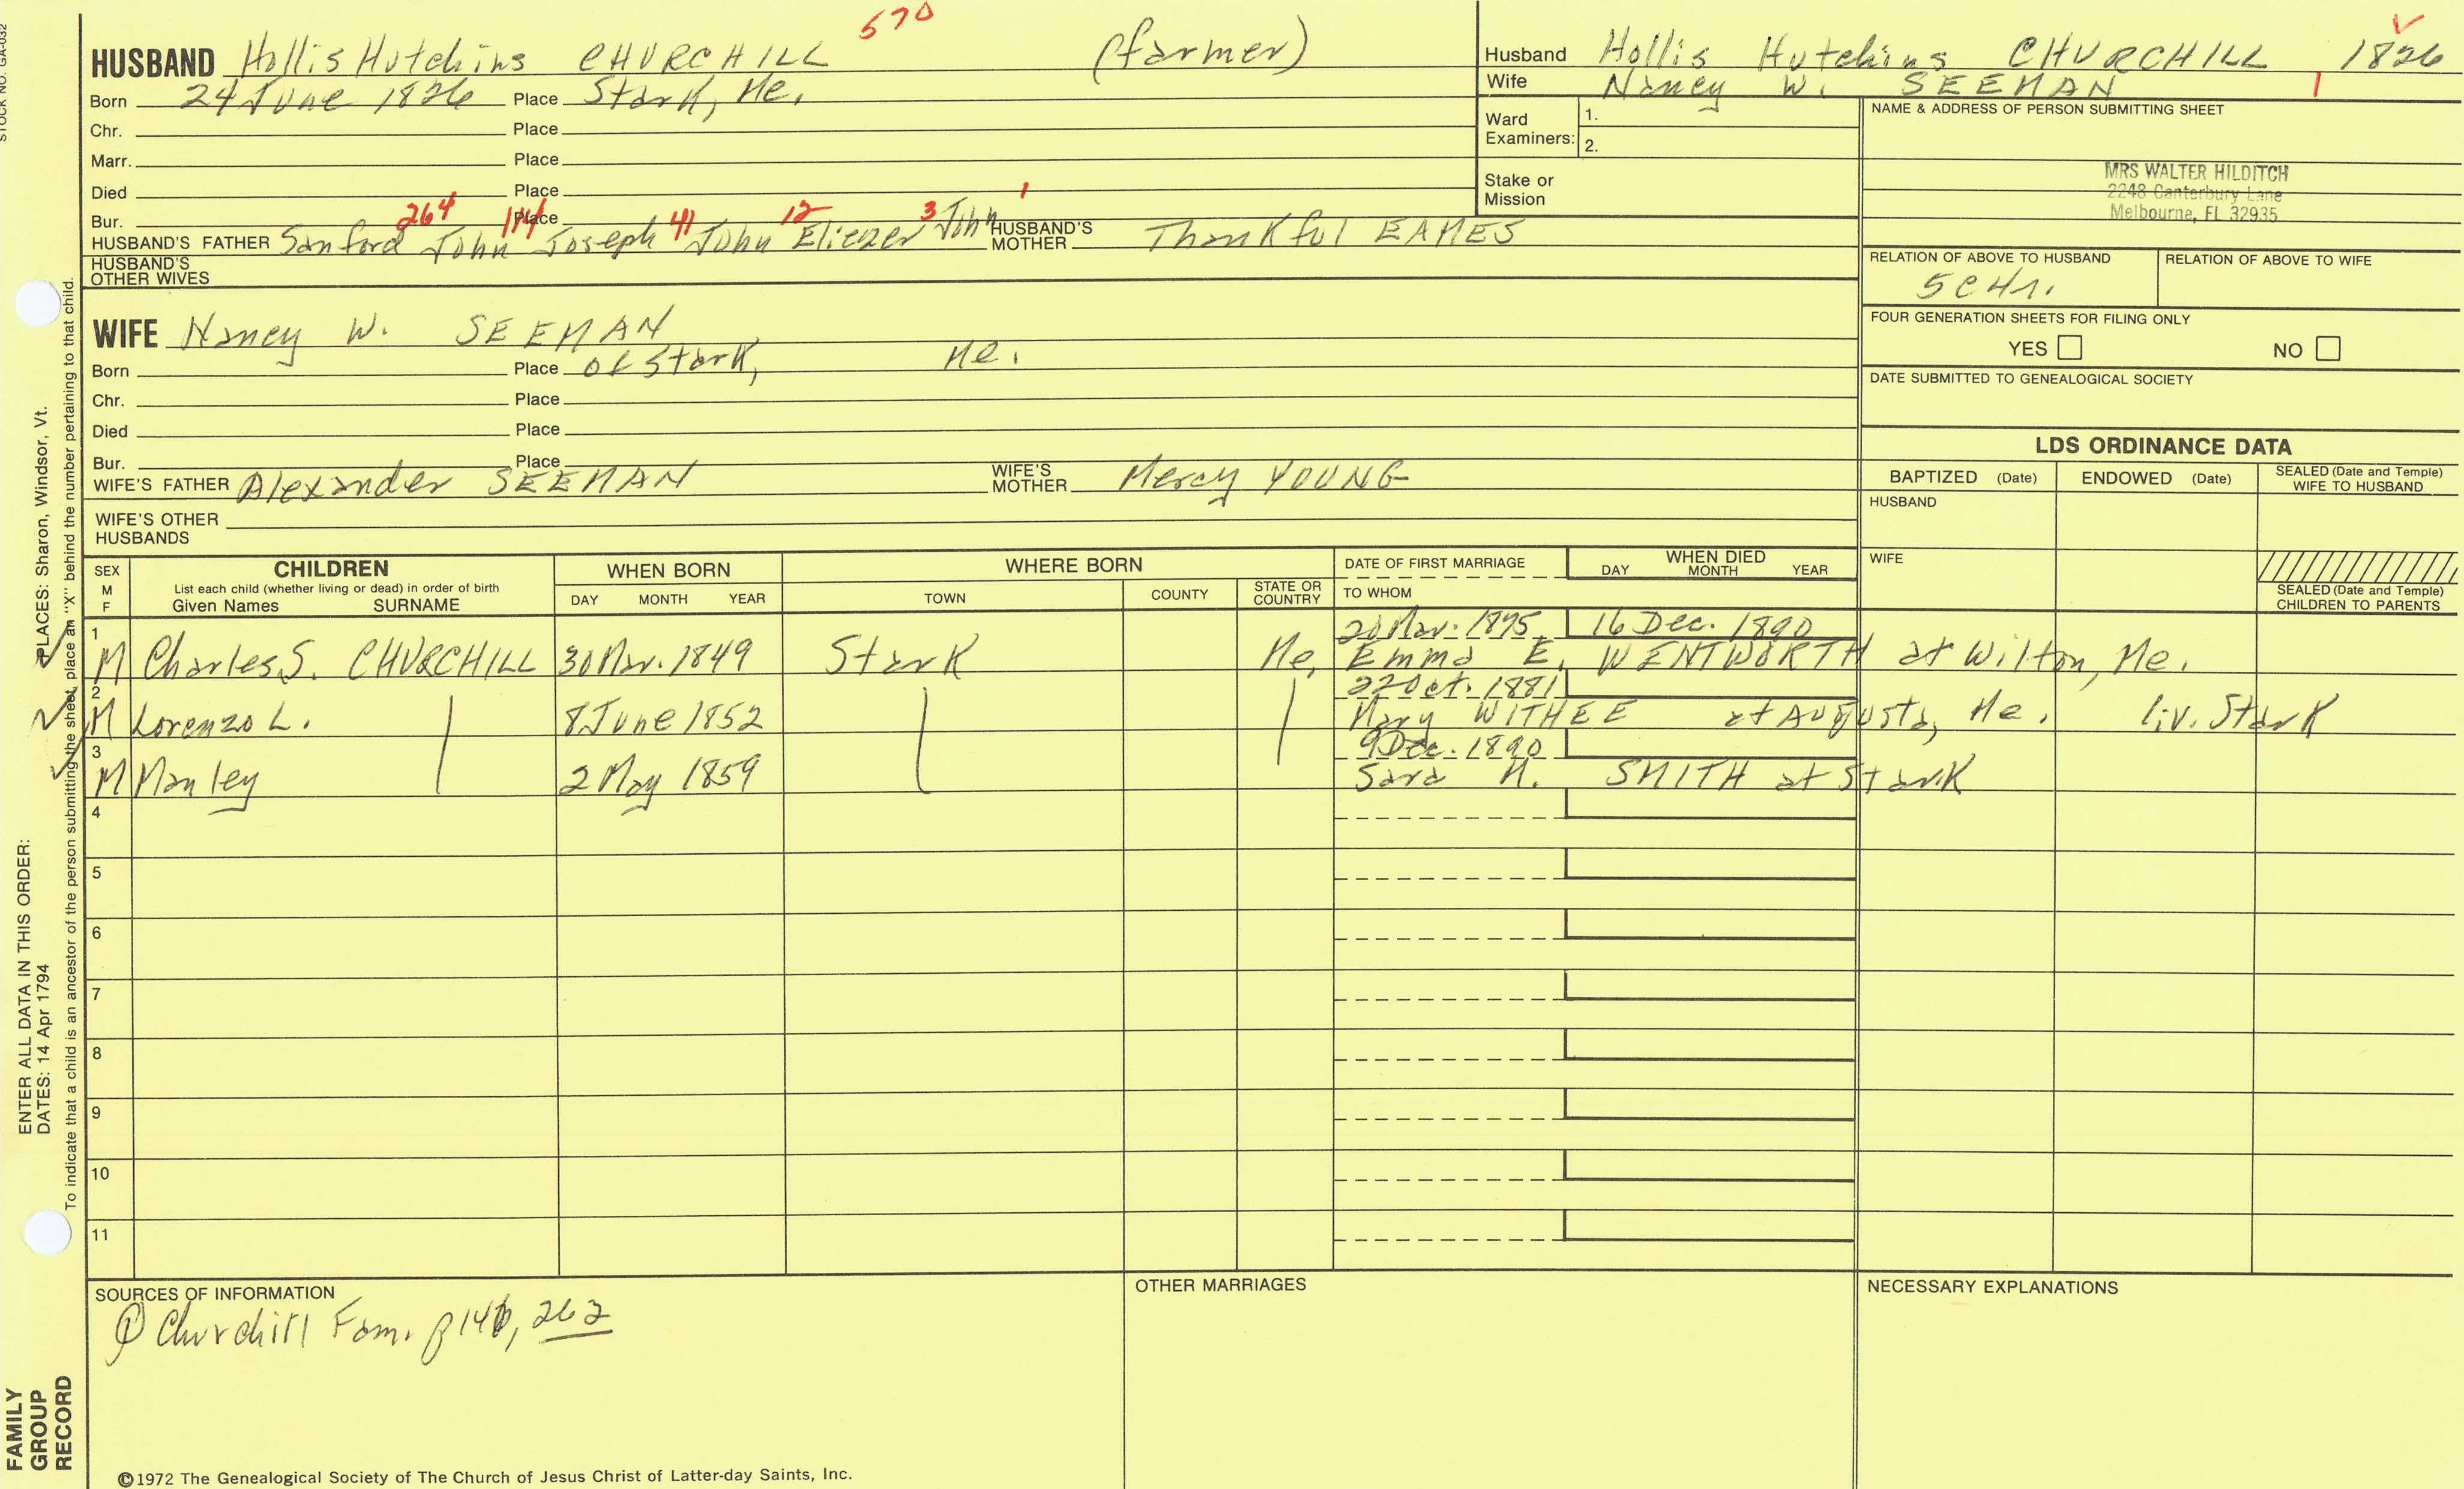 STOCK NO. GA-032
570
HUSBAND Hollis Hutchins CHURCHILL (farmer)
Born 24 June 1826 Place Stark, Me.
Chr. Place
Marr. Place
Died Place
Bur. Place
264 114 41 12 3 1
HUSBAND'S FATHER Sanford John Joseph John Eliezer John HUSBAND'S MOTHER Thankful EAMES
HUSBAND'S OTHER WIVES
WIFE Nancy W. SEEMAN
Born Place of Stark, Me.
Chr. Place
Died Place
Bur. Place
WIFE'S FATHER Alexander SEEMAN WIFE'S MOTHER Mercy YOUNG
WIFE'S OTHER HUSBANDS
Husband Hollis Hutchins CHURCHILL 1826
Wife Nancy W. SEEMAN 1
Ward Examiners: 1.
2.
Stake or Mission
NAME & ADDRESS OF PERSON SUBMITTING SHEET
MRS WALTER HILDITCH
2248 Canterbury Lane
Melbourne, FL 32935
RELATION OF ABOVE TO HUSBAND RELATION OF ABOVE TO WIFE
5C4r.
FOUR GENERATION SHEETS FOR FILING ONLY
YES NO
DATE SUBMITTED TO GENEALOGICAL SOCIETY
LDS ORDINANCE DATA
BAPTIZED (Date) ENDOWED (Date) SEALED (Date and Temple) WIFE TO HUSBAND
HUSBAND
WIFE
SEALED (Date and Temple) CHILDREN TO PARENTS
SEX M F
CHILDREN
List each child (whether living or dead) in order of birth
Given Names SURNAME
WHEN BORN
DAY MONTH YEAR
WHERE BORN
TOWN COUNTY STATE OR COUNTRY
DATE OF FIRST MARRIAGE
TO WHOM
WHEN DIED
DAY MONTH YEAR
1 20 Mar. 1875 16 Dec. 1890
M Charles S. CHURCHILL 30 Mar. 1849 Stark Me. Emma E. WENTWORTH at Wilton, Me.
2 22 Oct. 1881
M Lorenzo L. 8 June 1852 Mary WITHEE at Augusta, Me. liv. Stark
3 9 Dec. 1890
M Manley 2 May 1859 Sara M. SMITH at Stark
4
5
6
7
8
9
10
11
SOURCES OF INFORMATION
① Churchill Fam. p 140, 262
OTHER MARRIAGES
NECESSARY EXPLANATIONS
©1972 The Genealogical Society of The Church of Jesus Christ of Latter-day Saints, Inc.
ENTER ALL DATA IN THIS ORDER:
DATES: 14 Apr 1794 PLACES: Sharon, Windsor, Vt.
To indicate that a child is an ancestor of the person submitting the sheet, place an "X" behind the number pertaining to that child.
FAMILY
GROUP
RECORD